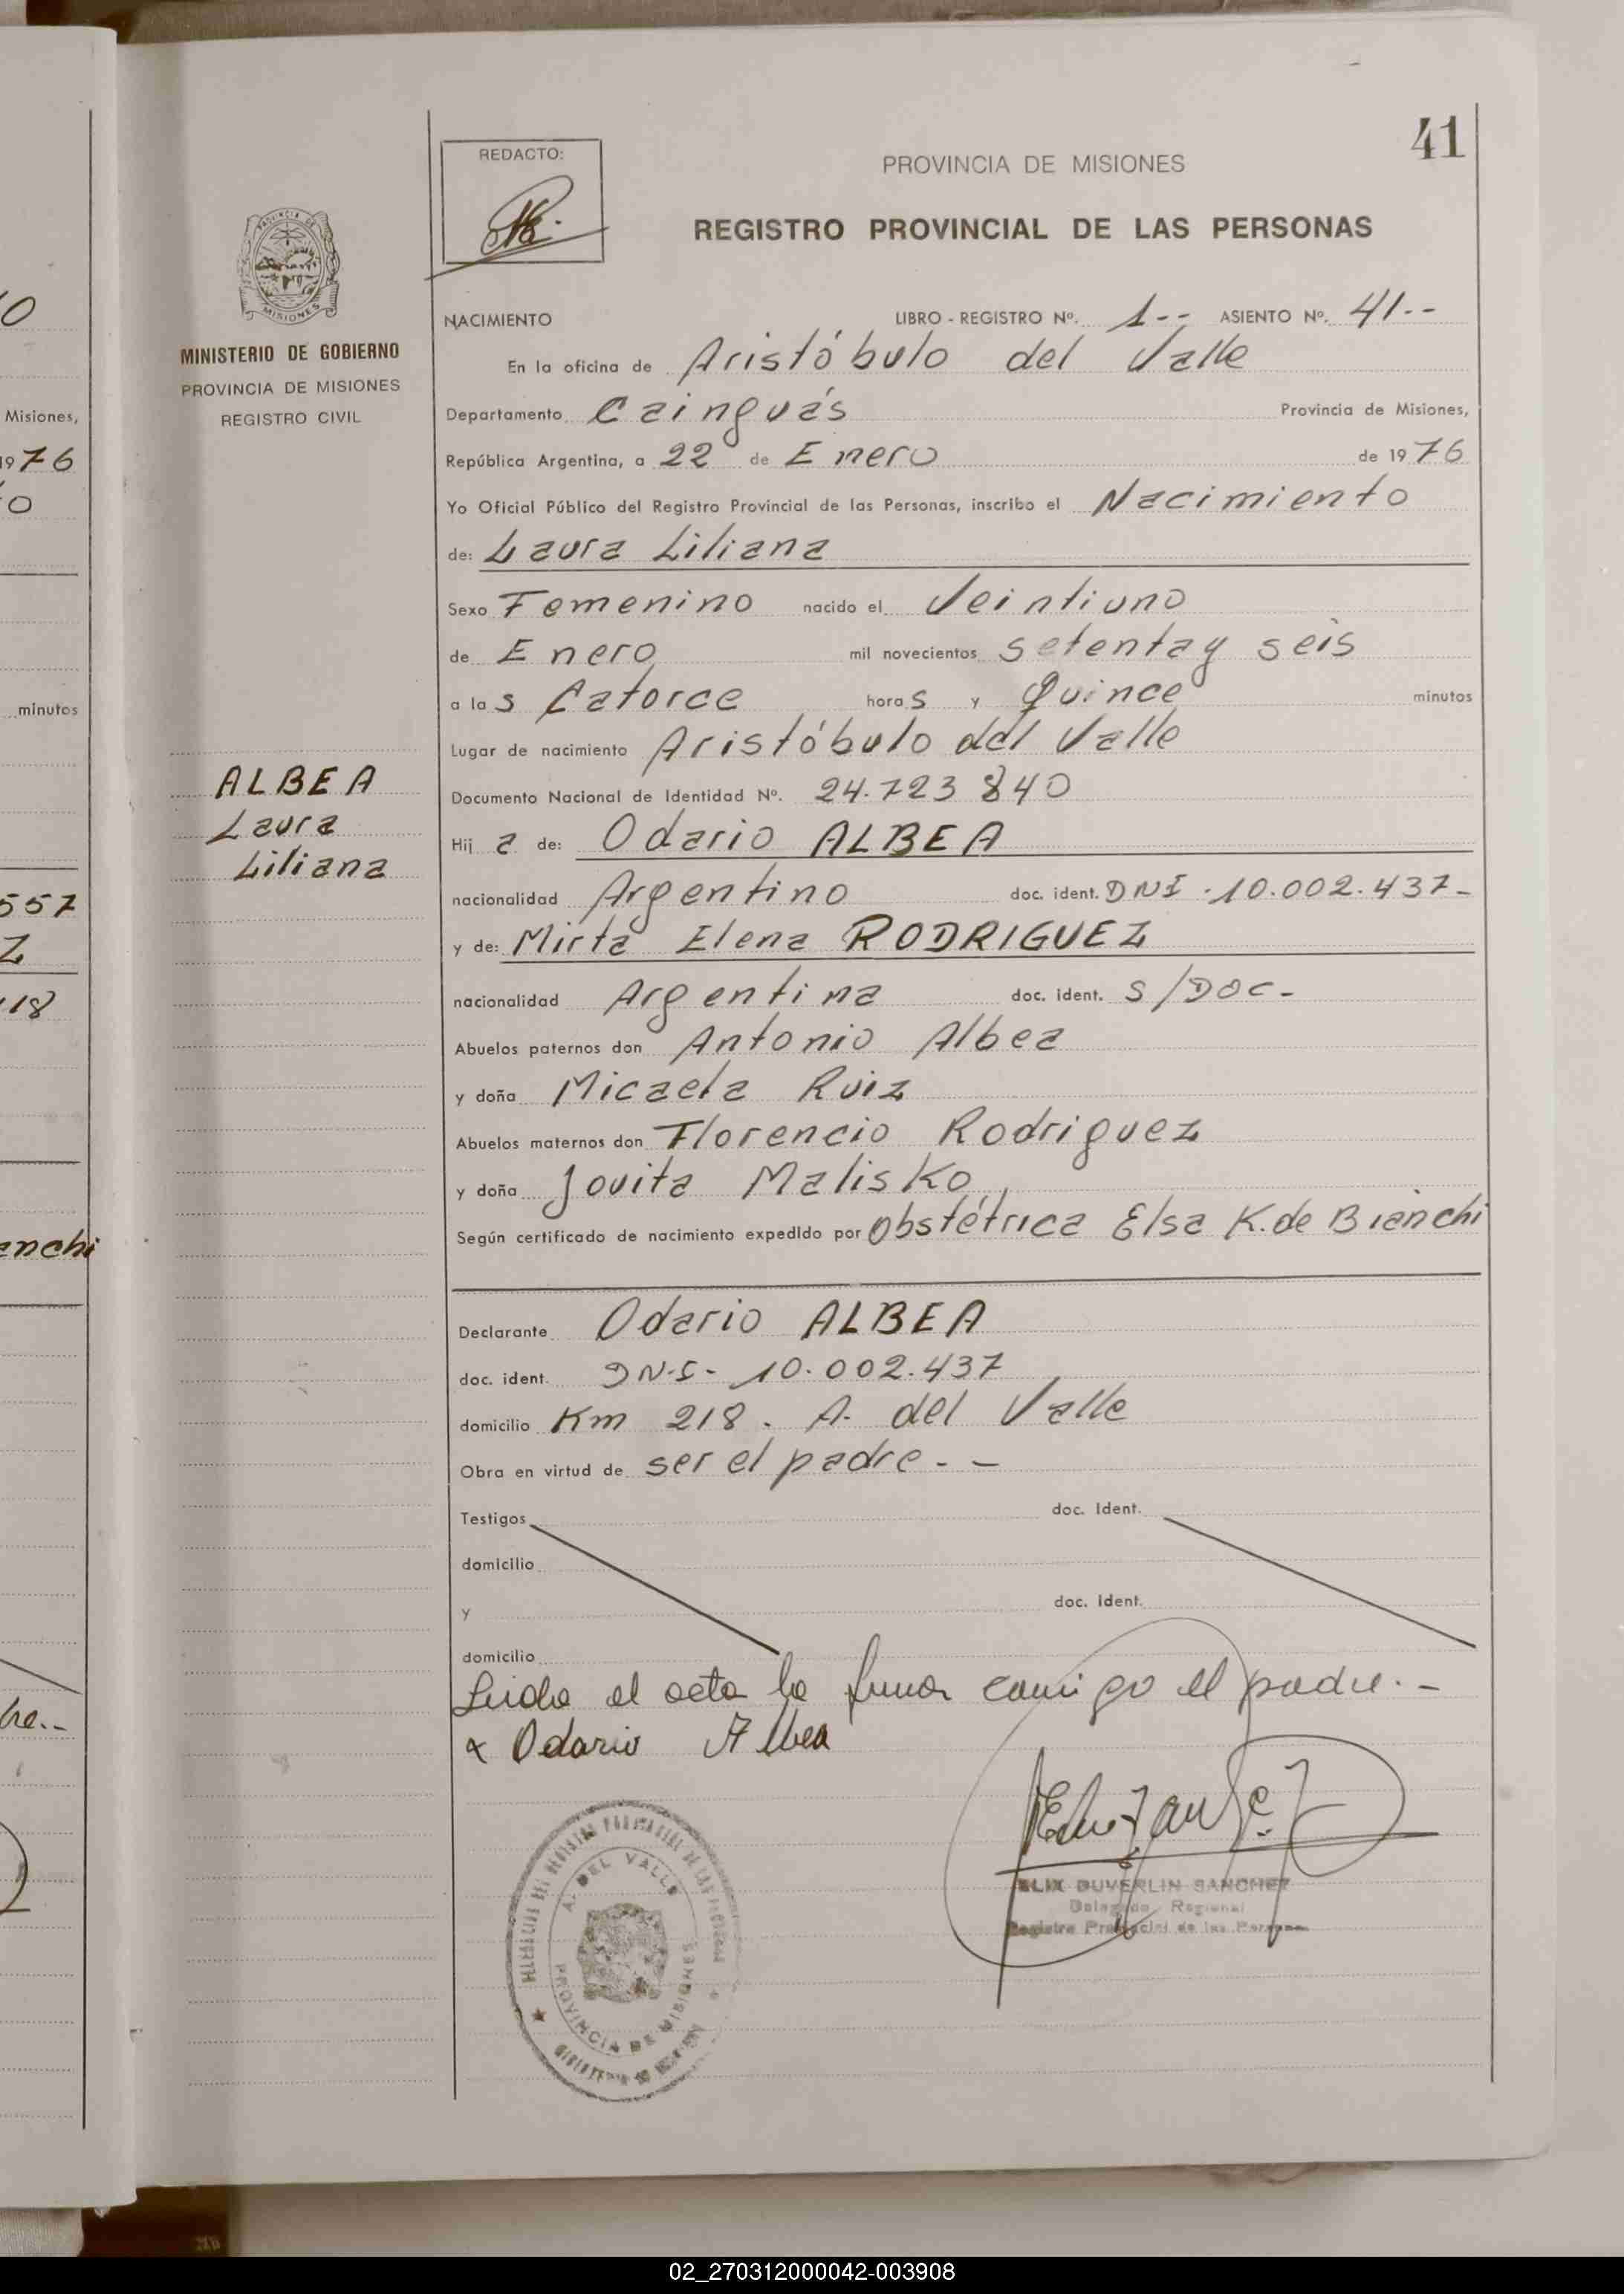 41
REDACTO:
PROVINCIA DE MISIONES
REGISTRO PROVINCIAL DE LAS PERSONAS
NACIMIENTO LIBRO - REGISTRO Nº. 1-- ASIENTO Nº. 41--
En la oficina de Aristóbulo del Valle
Departamento Cainguás Provincia de Misiones,
República Argentina, a 22 de Enero de 1976
Yo Oficial Público del Registro Provincial de las Personas, inscribo el Nacimiento
de: Laura Liliana
Sexo Femenino nacido el Veintiuno
de Enero mil novecientos setenta y seis
a las Catorce horas y Quince minutos
Lugar de nacimiento Aristóbulo del Valle
Documento Nacional de Identidad Nº. 24.723840
Hija de: Odario ALBEA
nacionalidad Argentino doc. ident. DNI - 10.002.437-
y de: Mirta Elena RODRIGUEZ
nacionalidad Argentina doc. ident. S/DOC-
Abuelos paternos don Antonio Albea
y doña Micaela Ruiz
Abuelos maternos don Florencio Rodriguez
y doña Jovita Malisko
Según certificado de nacimiento expedido por Obstétrica Elsa K. de Bianchi
Declarante Odario ALBEA
doc. ident. DN.I- 10.002.437
domicilio Km 218. A. del Valle
Obra en virtud de ser el padre.--
Testigos doc. Ident.
domicilio
y doc. ident.
domicilio
Leida el acta la firma conmigo el padre.-
x Odario Albea
ELIX DUVERLIN SANCHEZ
Delegado Regional
Registro Provincial de las Personas
A. DEL VALLE
PROVINCIA DE MISIONES
MINISTERIO DE GOBIERNO
PROVINCIA DE MISIONES
REGISTRO CIVIL
PROVINCIA DE
MISIONES
ALBEA
Laura
Liliana
Misiones,
1976
minutos
557
Z
118
anchi
02_270312000042-003908